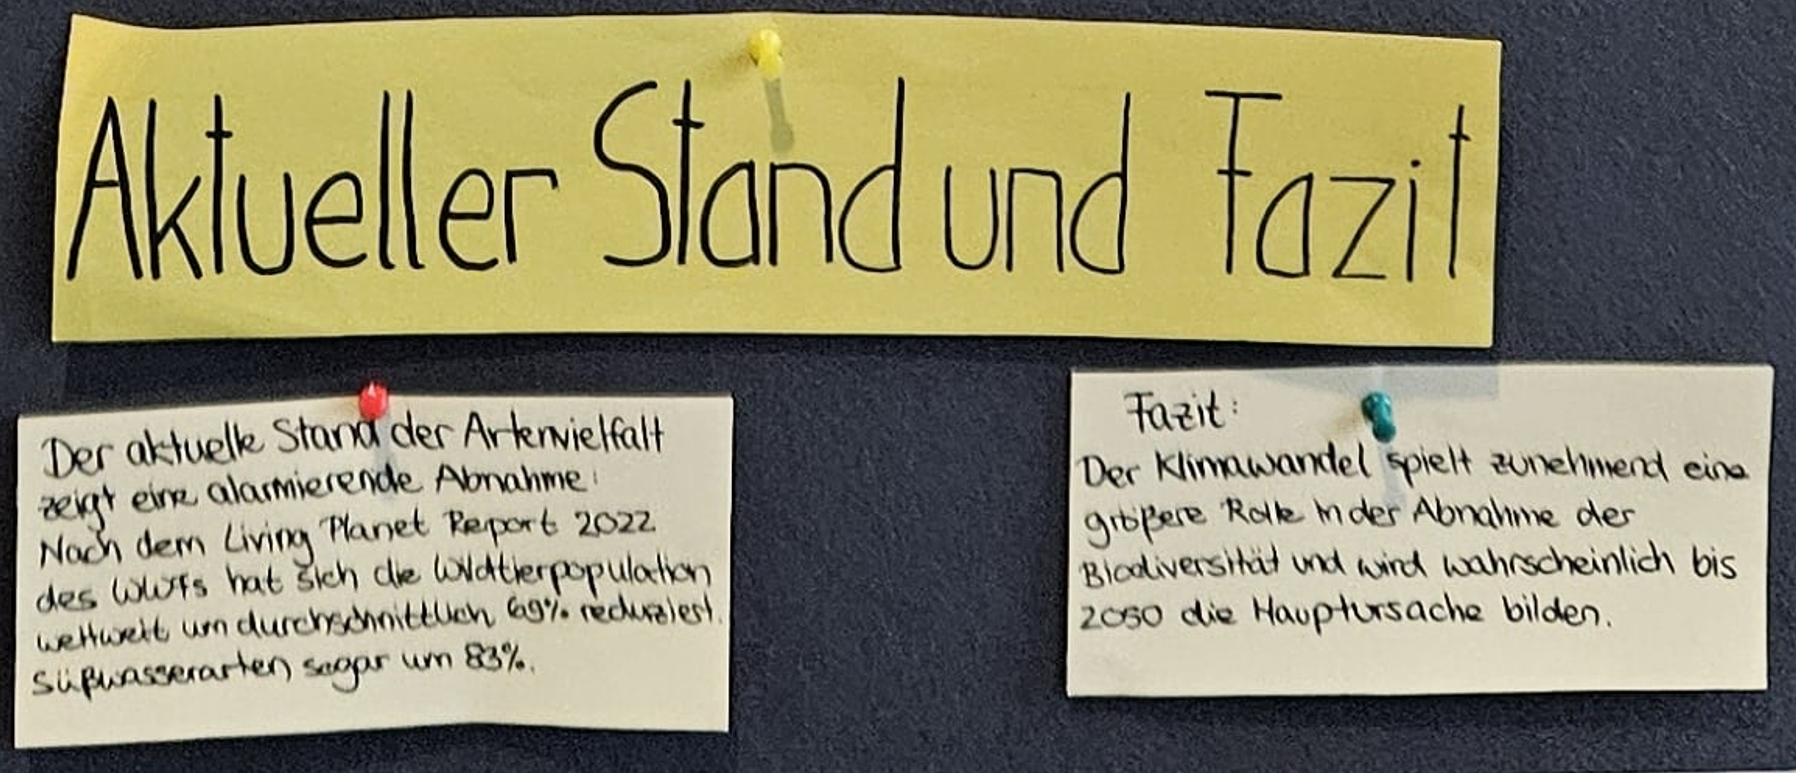 Aktueller Stand und Fazit
Der aktuelle Stand der Artenvielfalt
zeigt eine alarmierende Abnahme:
Nach dem Living Planet Report 2022
des WWFs hat sich die Wildtierpopulation
weltweit um durchschnittlich 69% reduziert.
Süßwasserarten sogar um 83%.
Fazit:
Der Klimawandel spielt zunehmend eine
größere Rolle in der Abnahme der
Biodiversität und wird wahrscheinlich bis
2050 die Hauptursache bilden.